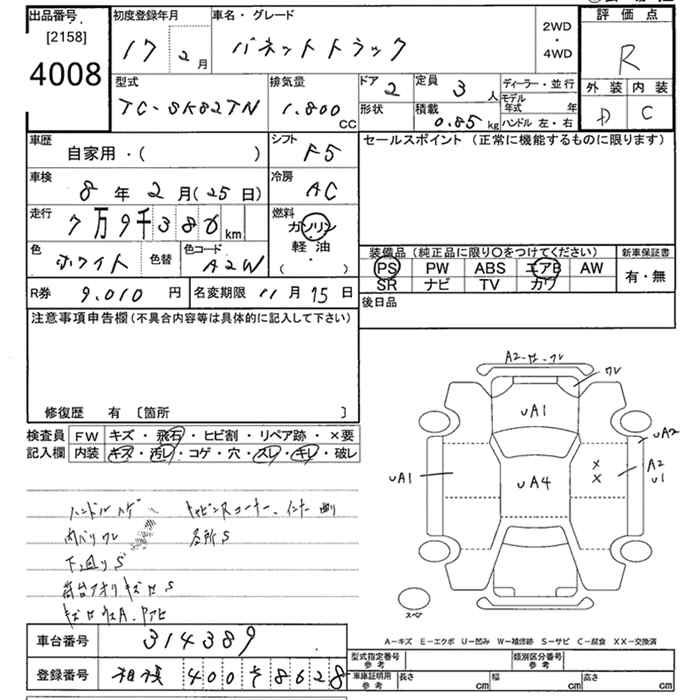 出品番号 初度登録年月 車名・グレード 評価点
[2158] 17 2月 バネットトラック 2WD・4WD R
4008
型式 排気量 ドア 2 定員 3人 ディーラー・並行 外装 内装
TC-SK82TN 1.800 CC 形状 積載 0.85 kg モデル年式 年 ハンドル 左・右 D C
車歴 自家用・( ) シフト F5 セールスポイント (正常に機能するものに限ります)
車検 8年2月(25日) 冷房 AC
走行 7万9千386km 燃料 ガソリン
軽油
・( )
色 ホワイト 色替 色コード A2W
装備品(純正品に限り○をつけてください) 新車保証書
PS PW ABS エアB AW 有・無
SR ナビ TV カワ
R券 9.010円 名変期限 11月15日 後日品
注意事項申告欄(不具合内容等は具体的に記入して下さい)
修復歴 有 [箇所 ]
検査員 FW キズ・飛石・ヒビ割・リペア跡・×要
記入欄 内装 キズ・汚レ・コゲ・穴・スレ・キレ・破レ
A2
ワレ
UA1
UA2
UA1 UA4 XX A2 U1
ハンドルハゲ キャビンRコーナー、インナー
内バリワレ 各所S
下廻りS
荷台アオリキズセS
スペア
A-キズ E-エクボ U-凹み W-補修跡 S-サビ C-腐食 XX-交換済
車台番号 314389
型式指定番号 参考 類別区分番号 参考
登録番号 相模 400 そ 8628
車庫証明用 参考 長さ cm 幅 cm 高さ cm